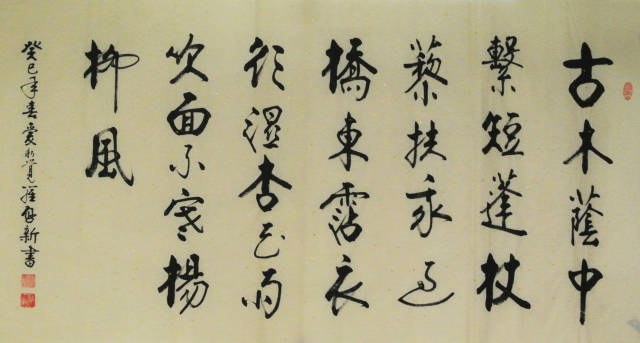 古木蔭中
繫短蓬杖
藜扶我過
橋東霑衣
欲濕杏花雨
吹面不寒楊
柳風
癸巳年春愛新覺羅新書